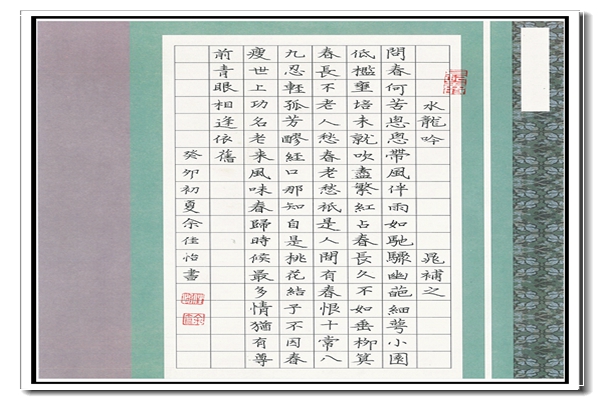 水龍吟 晁補之
問春何苦悤悤帶風伴雨如馳驟幽葩細萼小園
低檻壅培未就吹盡繁紅占春長久不如垂柳算
春長不老人愁春老愁祇是人間有春恨十常八
九忍輕孤芳醪經口那知自是桃花結子不因春
瘦世上功名老來風味春歸時候最多情猶有尊
前青眼相逢依舊
癸卯初夏余佳怡書